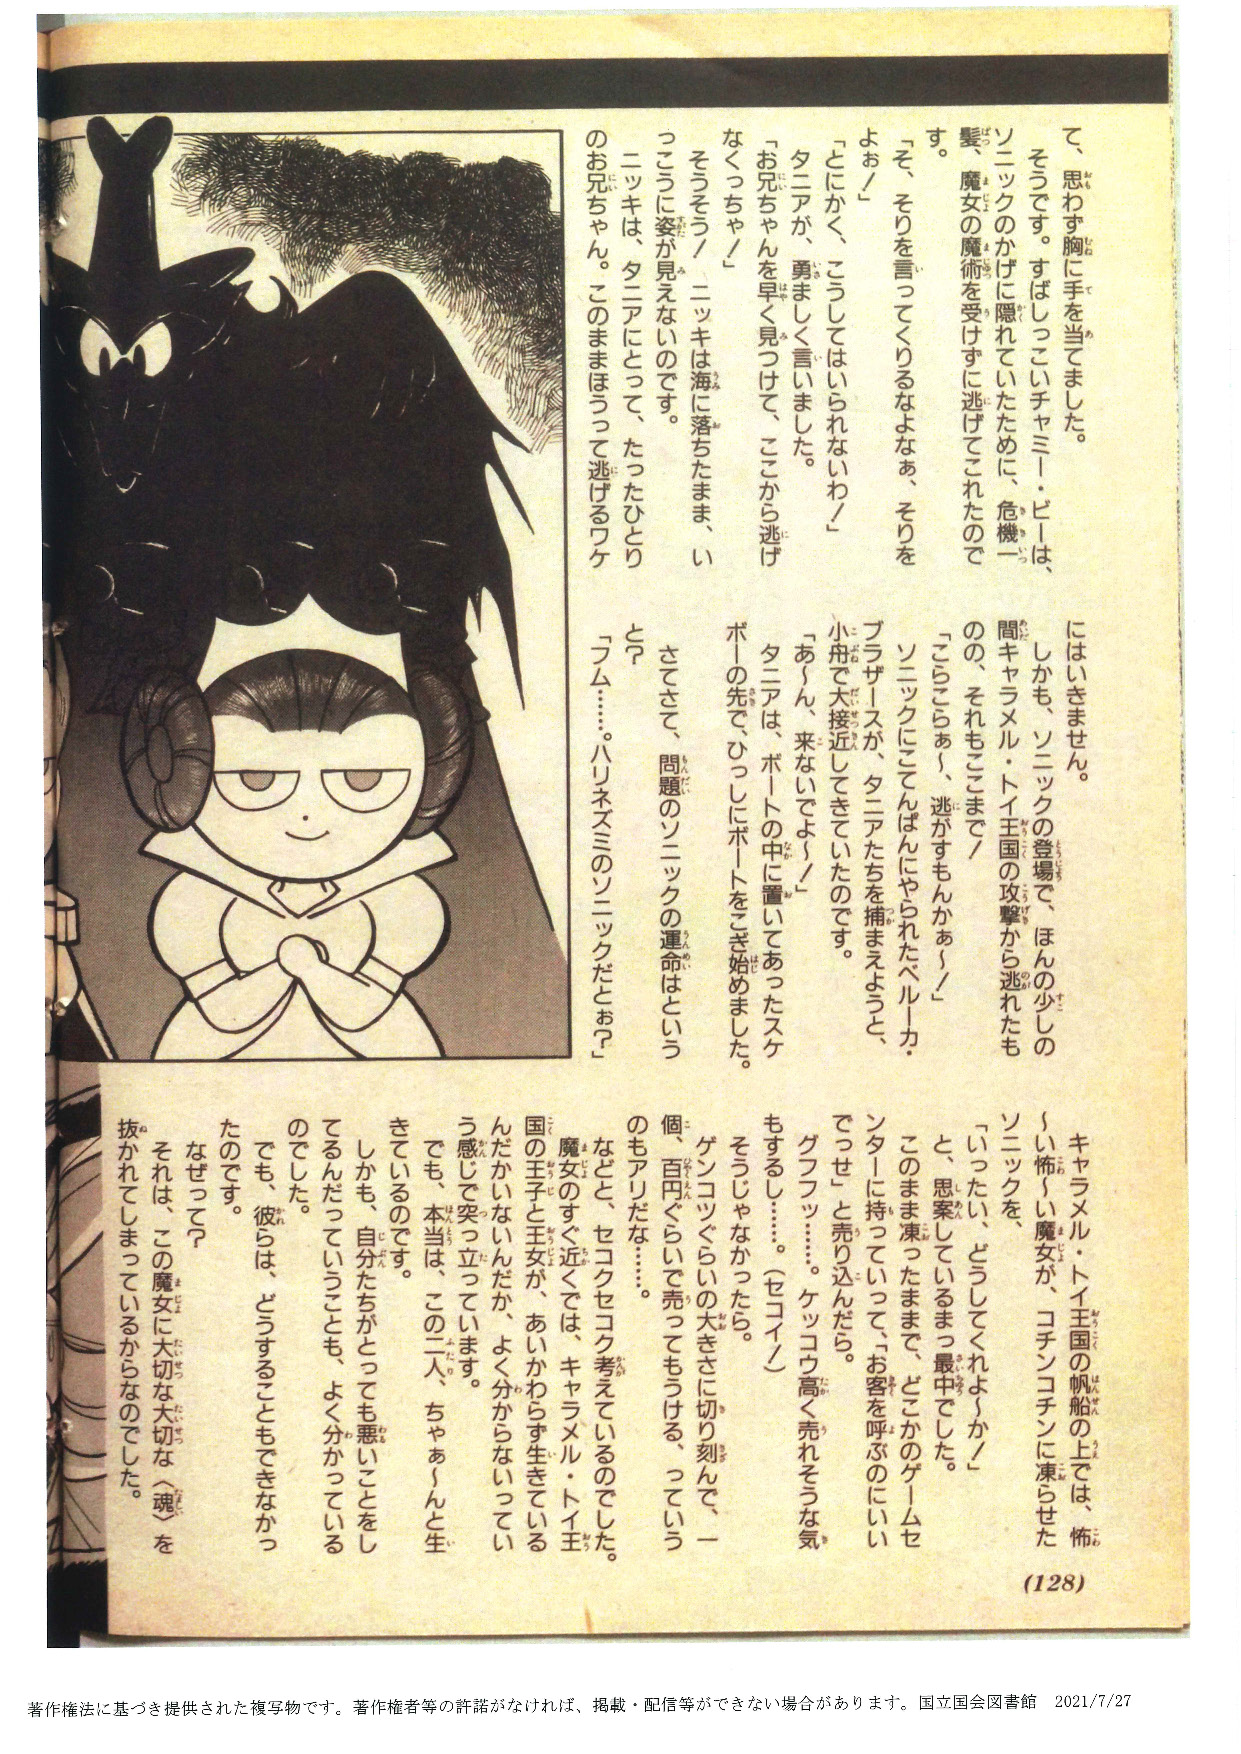 て、思わず胸に手を当てました。
そうです。すばしっこいチャミー・ビーは、
ソニックのかげに隠れていたために、危機一
髪、魔女の魔術を受けずに逃げてこれたので
す。
「そ、そりを言ってくりるなよなぁ、そりを
よぉ！」
「とにかく、こうしてはいられないわ！」
タニアが、勇ましく言いました。
「お兄ちゃんを早く見つけて、ここから逃げ
なくっちゃ！」
そうそう！　ニッキは海に落ちたまま、い
っこうに姿が見えないのです。
ニッキは、タニアにとって、たったひとり
のお兄ちゃん。このままほうって逃げるワケ
にはいきません。
しかも、ソニックの登場で、ほんの少しの
間キャラメル・トイ王国の攻撃から逃れたも
のの、それもここまで！
「こらこらぁ〜、逃がすもんかぁ〜！」
ソニックにこてんぱんにやられたベルーカ・
ブラザースが、タニアたちを捕まえようと、
小舟で大接近してきていたのです。
「あ〜ん、来ないでよ〜！」
タニアは、ボートの中に置いてあったスケ
ボーの先で、ひっしにボートをこぎ始めました。
さてさて、問題のソニックの運命はという
と？
「フム……。ハリネズミのソニックだとぉ？」
キャラメル・トイ王国の帆船の上では、怖
〜い怖〜い魔女が、コチンコチンに凍らせた
ソニックを、
「いったい、どうしてくれよ〜か！」
と、思案しているまっ最中でした。
このまま凍ったままで、どこかのゲームセ
ンターに持っていって、「お客を呼ぶのにいい
でっせ」と売り込んだら。
グフフッ……。ケッコウ高く売れそうな気
もするし……。（セコイ！）
そうじゃなかったら。
ゲンコツぐらいの大きさに切り刻んで、一
個、百円ぐらいで売ってもうける、っていう
のもアリだな……。
などと、セコクセコク考えているのでした。
魔女のすぐ近くでは、キャラメル・トイ王
国の王子と王女が、あいかわらず生きている
んだかいないんだか、よく分からないってい
う感じで突っ立っています。
でも、本当は、この二人、ちゃぁ〜んと生
きているのです。
しかも、自分たちがとっても悪いことをし
てるんだっていうことも、よく分かっている
のでした。
でも、彼らは、どうすることもできなかっ
たのです。
なぜって？
それは、この魔女に大切な大切な〈魂〉を
抜かれてしまっているからなのでした。
(128)
著作権法に基づき提供された複写物です。著作権者等の許諾がなければ、掲載・配信等ができない場合があります。国立国会図書館　2021/7/27